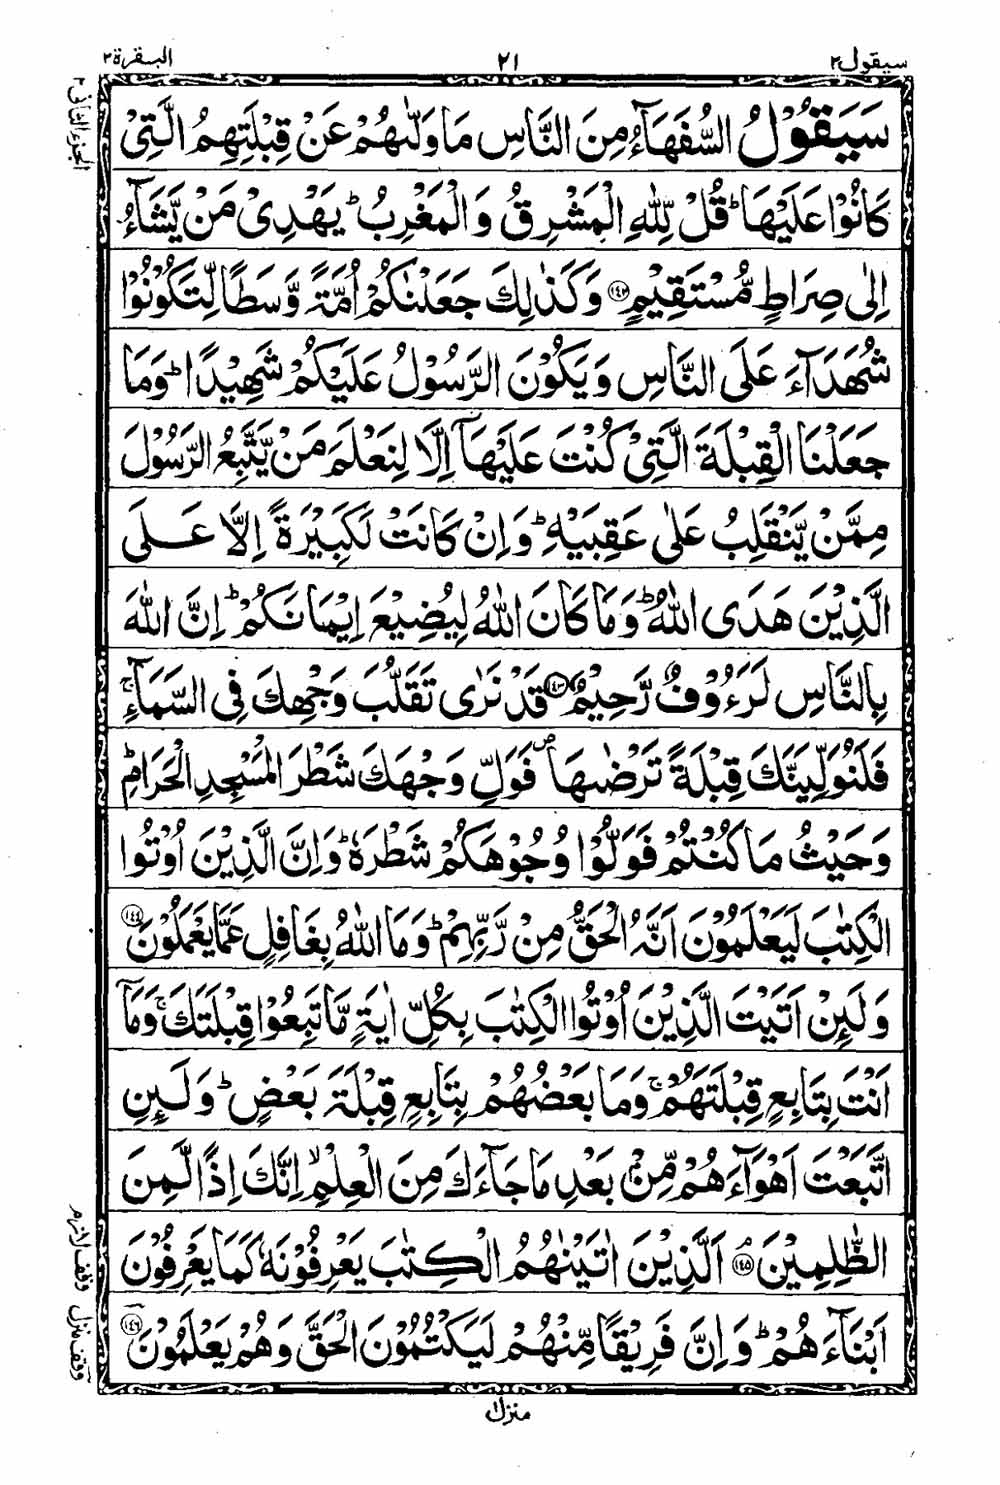 سيقول ٢
٢١
البقرة ٢
الجزء الثاني ٢
سَيَقُوْلُ السُّفَهَآءُ مِنَ النَّاسِ مَا وَلّٰىهُمْ عَنْ قِبْلَتِهِمُ الَّتِيْ
كَانُوْا عَلَيْهَا ؕ قُلْ لِّلّٰهِ الْمَشْرِقُ وَ الْمَغْرِبُ ؕ يَهْدِيْ مَنْ يَّشَآءُ
اِلٰى صِرَاطٍ مُّسْتَقِيْمٍ ﴿۱۴۲﴾ وَ كَذٰلِكَ جَعَلْنٰكُمْ اُمَّةً وَّسَطًا لِّتَكُوْنُوْا
شُهَدَآءَ عَلَى النَّاسِ وَ يَكُوْنَ الرَّسُوْلُ عَلَيْكُمْ شَهِيْدًا ؕ وَمَا
جَعَلْنَا الْقِبْلَةَ الَّتِيْ كُنْتَ عَلَيْهَآ اِلَّا لِنَعْلَمَ مَنْ يَّتَّبِعُ الرَّسُوْلَ
مِمَّنْ يَّنْقَلِبُ عَلٰى عَقِبَيْهِ ؕ وَاِنْ كَانَتْ لَكَبِيْرَةً اِلَّا عَلَى
الَّذِيْنَ هَدَى اللّٰهُ ؕ وَمَا كَانَ اللّٰهُ لِيُضِيْعَ اِيْمَانَكُمْ ؕ اِنَّ اللّٰهَ
بِالنَّاسِ لَرَءُوْفٌ رَّحِيْمٌ ﴿۱۴۳﴾ قَدْ نَرٰى تَقَلُّبَ وَجْهِكَ فِي السَّمَآءِ ۚ
فَلَنُوَلِّيَنَّكَ قِبْلَةً تَرْضٰىهَا ۪ فَوَلِّ وَجْهَكَ شَطْرَ الْمَسْجِدِ الْحَرَامِ ؕ
وَحَيْثُ مَا كُنْتُمْ فَوَلُّوْا وُجُوْهَكُمْ شَطْرَهٗ ؕ وَاِنَّ الَّذِيْنَ اُوْتُوا
الْكِتٰبَ لَيَعْلَمُوْنَ اَنَّهُ الْحَقُّ مِنْ رَّبِّهِمْ ؕ وَمَا اللّٰهُ بِغَافِلٍ عَمَّا يَعْمَلُوْنَ ﴿۱۴۴﴾
وَلَئِنْ اَتَيْتَ الَّذِيْنَ اُوْتُوا الْكِتٰبَ بِكُلِّ اٰيَةٍ مَّا تَبِعُوْا قِبْلَتَكَ ۚ وَمَآ
اَنْتَ بِتَابِعٍ قِبْلَتَهُمْ ۚ وَمَا بَعْضُهُمْ بِتَابِعٍ قِبْلَةَ بَعْضٍ ؕ وَلَئِنِ
اتَّبَعْتَ اَهْوَآءَهُمْ مِّنْۢ بَعْدِ مَا جَآءَكَ مِنَ الْعِلْمِ ۙ اِنَّكَ اِذًا لَّمِنَ
الظّٰلِمِيْنَ ﴿۱۴۵﴾ ۘ اَلَّذِيْنَ اٰتَيْنٰهُمُ الْكِتٰبَ يَعْرِفُوْنَهٗ كَمَا يَعْرِفُوْنَ
اَبْنَآءَهُمْ ؕ وَاِنَّ فَرِيْقًا مِّنْهُمْ لَيَكْتُمُوْنَ الْحَقَّ وَهُمْ يَعْلَمُوْنَ ﴿۱۴۶﴾
وقف لازم
وقف منزل
منزل ١